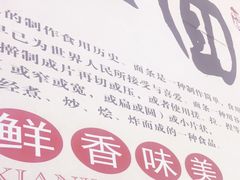 面
的制作食用历史，面条是一种制作简单，食用
早已为世界人民所接受与喜爱。面条是一种用谷
擀制成片再切或压，或者使用搓、拉、
，或窄或宽，或扁或圆）或小片状，
经煮、炒、烩、炸而成的一种食品。
鲜香味美
XIAN